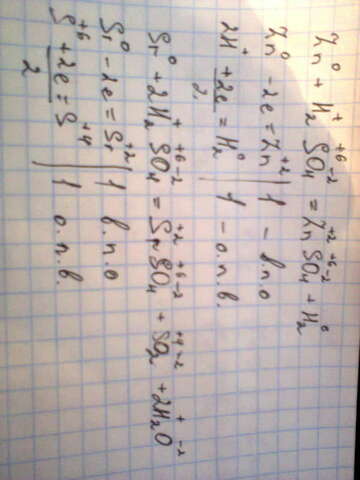 Zn⁰ + H₂⁺ S⁺⁶O₄⁻² = Zn⁺² S⁺⁶O₄⁻² + H₂⁰
Zn⁰ - 2e = Zn⁺² | 1 - в.п.о
2H⁺ + 2e = H₂⁰ | 1 - о.п.в.
2
Sr⁰ + 2H₂⁺ S⁺⁶O₄⁻² = Sr⁺² S⁺⁶O₄⁻² + S⁺⁴O₂⁻² + 2H₂⁺O⁻²
Sr⁰ - 2e = Sr⁺² | 1 в.п.о
S⁺⁶ + 2e = S⁺⁴ | 1 о.п.в.
2